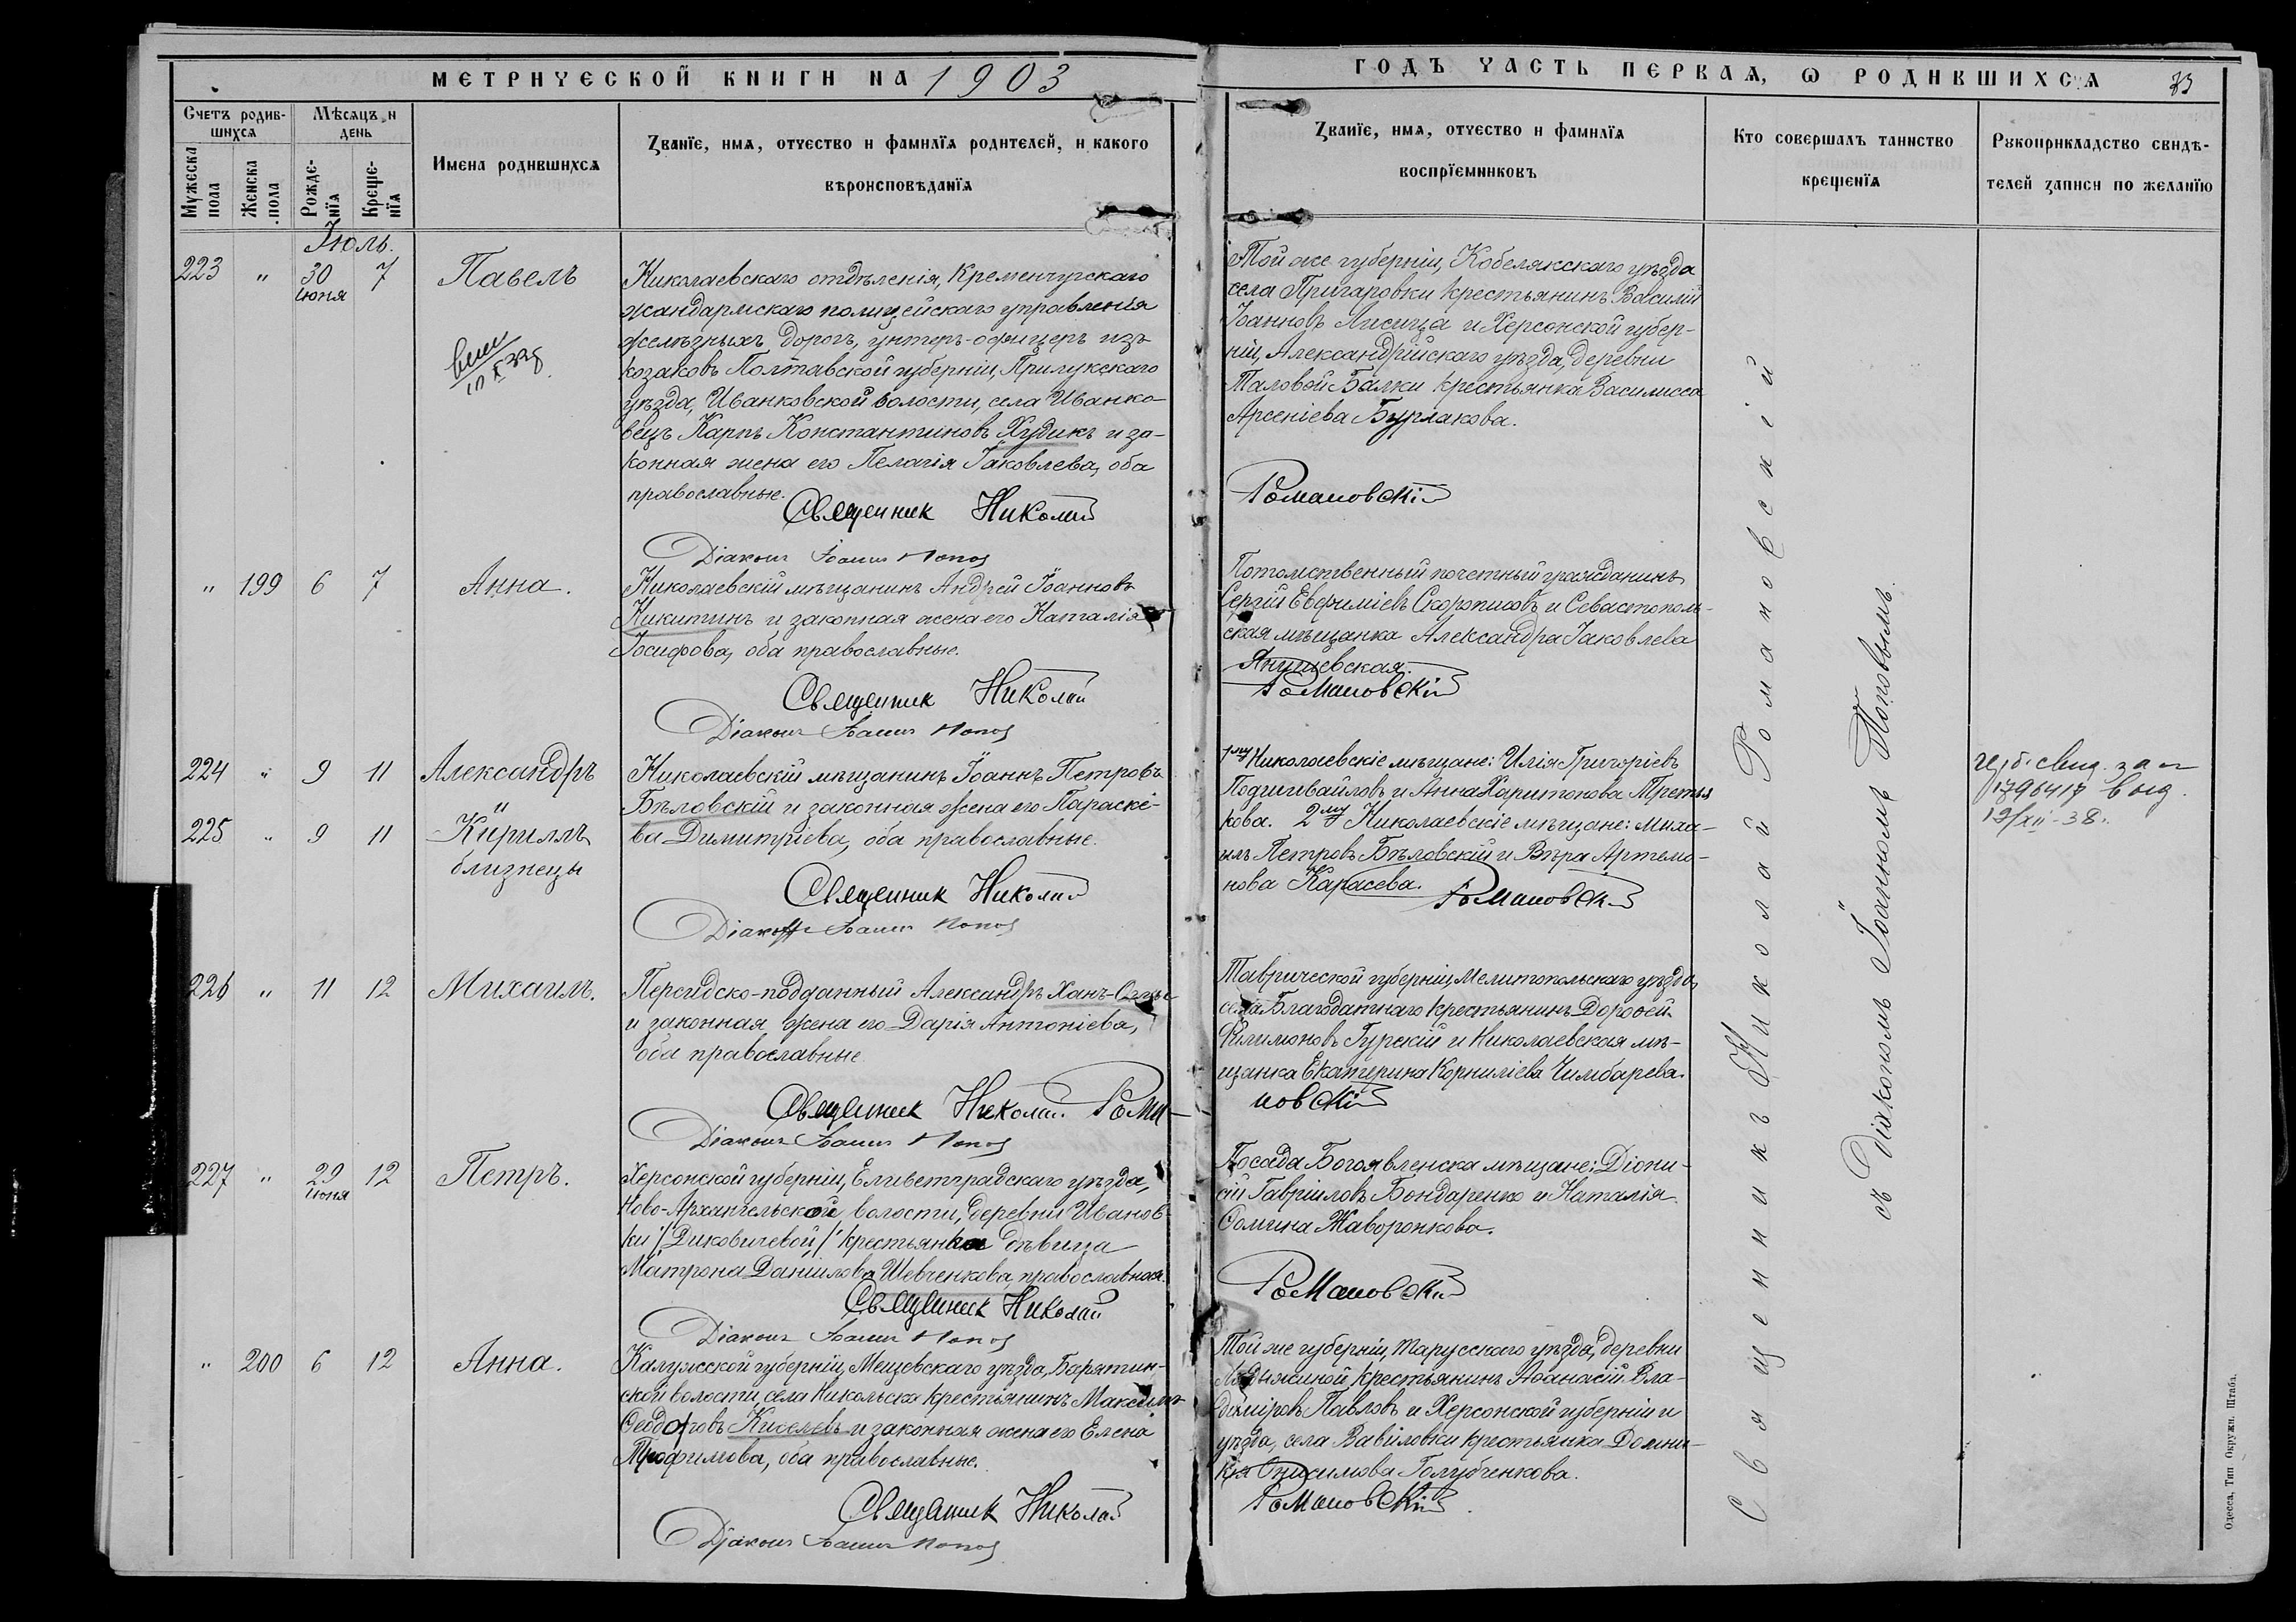 МЕТРИЧЕСКОЙ КНИГИ НА 1903
Счетъ родив-
шихся
Мѣсяцъ и
день
Мужеска
пола
Женска
пола
Рожде-
нїя
Креще-
нїя
Имена родившихся
Званїе, имя, отчество и фамилїя родителей, и какого
вѣроисповѣданїя
Іюль.
223 " 30 7 Павелъ
іюня
Николаевскаго отдѣленія, Кременчугскаго
жандармскаго полицейскаго управленія
желѣзныхъ дорогъ, унтеръ-офицеръ изъ
козаковъ Полтавской губерніи, Прилукскаго
уѣзда, Иванковской волости, села Иванко-
вецъ Карпъ Константиновъ Худикъ и за-
конная жена его Пелагія Іаковлева, оба
православные.
Священник Николай
Діаконъ Іоаннъ Попов
" 199 6 7 Анна.
Николаевскій мѣщанинъ Андрей Іоанновъ
Никитинъ и законная жена его Наталія
Іосифова, оба православные.
Священник Николай
Діаконъ Іоаннъ Попов
224 " 9 11 Александръ
"
225 " 9 11 Кириллъ
близнецы
Николаевскій мѣщанинъ Іоаннъ Петровъ
Бѣловскій и законная жена его Параске-
ва Димитріева, оба православные.
Священник Николай
Діаконъ Іоаннъ Попов
226 " 11 12 Михаилъ.
Персидско-подданный Александръ Ханъ-
и законная жена его Дарія Антоніева,
оба православные
Священник Николай Рома-
Діаконъ Іоаннъ Попов
227 " 29 12 Петръ.
іюня
Херсонской губерніи, Елисветградскаго уѣзда,
Ново-Архангельской волости, деревни Иванов-
ки /Диковичевой/ крестьянка дѣвица
Матрона Даніилова Шевченкова, православная.
Священник Николай
Діаконъ Іоаннъ Попов
" 200 6 12 Анна.
Калужской губерніи, Мещевскаго уѣзда, Барятин-
ской волости, села Никольска крестьянинъ Максимъ
Ѳеодоровъ Киселевъ и законная жена его Елена
Трофимова, оба православные.
Священник Николай
Діаконъ Іоаннъ Попов
ГОДЪ ЧАСТЬ ПЕРВАЯ, Ѡ РОДИВШИХСЯ
Званїе, имя, отчество и фамилїя
воспрїемниковъ
Кто совершалъ таинство
крещенїя
Рукоприкладство свидѣ-
телей записи по желанїю
Той же губерніи, Кобелякскаго уѣзда
села Пригаровки крестьянинъ Василій
Іоанновъ Лисица и Херсонской губер-
ніи, Александрійскаго уѣзда, деревни
Таловой Балки крестьянка Василисса
Арсеніева Бурлакова.
Романовскій
Потомственный почетный гражданинъ
Сергій Евфиміевъ Скорописовъ и Севастополь-
ская мѣщанка Александра Іаковлева
Янушевская.
Романовскій
1му Николаевскіе мѣщане: Илія Григоріевъ
Подшивайловъ и Анна Харитонова Третья
кова. 2му Николаевскіе мѣщане: Миха-
илъ Петровъ Бѣловскій и Вѣра Артемо-
нова Карасева.
Романовский
Таврической губерніи, Мелитопольскаго уѣзда,
села Благодатнаго крестьянинъ Дороѳей
Филимоновъ Гурскій и Николаевская мѣ-
щанка Екатерина Корниліева Чимбарева.
новскій
Посада Богоявленска мѣщане: Діони-
сій Гавріиловъ Бондаренко и Наталія
Ѳомина Жаворонкова.
Романовский
Той же губерніи, Тарусскаго уѣзда, деревни
крестьянинъ Аѳанасій Вла-
диміровъ Павловъ и Херсонской губерніи и
уѣзда, села Вавиловки крестьянка Домни-
кія Онисимова Голубченкова.
Романовскій
Священникъ Николай Романовскій
съ Діакономъ Іоанномъ Поповымъ.
1796417 выд.
19/XII-38.
Одесса, Тип Окружн. Штаба.